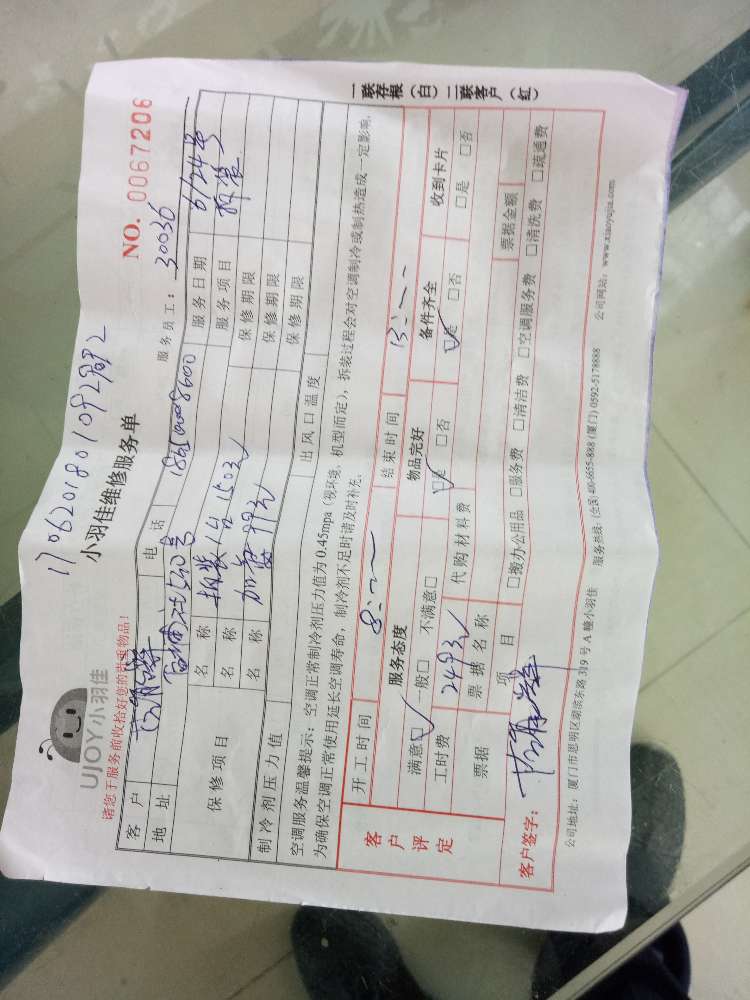 170620180109298?2
UJOY小羽佳
小羽佳维修服务单
NO. 0067206
请您于服务前收拾好您的贵重物品!
服务员工: 30036
客户
电话
服务日期 6/24号
地址
服务项目 拆装
保修项目
名称 拆装1台150元
保修期限
名称 加氟99元
保修期限
名称
保修期限
制冷剂压力值
出风口温度
空调服务温馨提示: 空调正常制冷剂压力值为0.45mpa(视环境、机型而定), 拆装过程会对空调制冷或制热造成一定影响,
为确保空调正常使用延长空调寿命, 制冷剂不足时请及时补充。
客户评定
开工时间 8:--
结束时间 13:--
服务态度
物品完好
备件齐全
收到卡片
满意☑ 一般□ 不满意□
☑是 □否
☑是 □否
□是 □否
工时费 249元
代购材料费
票据
票据名称
票据金额
项目
□搬办公用品 □服务费 □清洁费 □空调服务费 □清洗费 □疏通费
客户签字:
公司地址: 厦门市思明区湖滨东路319号A幢小羽佳
服务热线: (全国)400-6655-888 (厦门)0592-5178888
公司网站: www.xiaoyujia.com
一联存根(白) 二联客户(红)